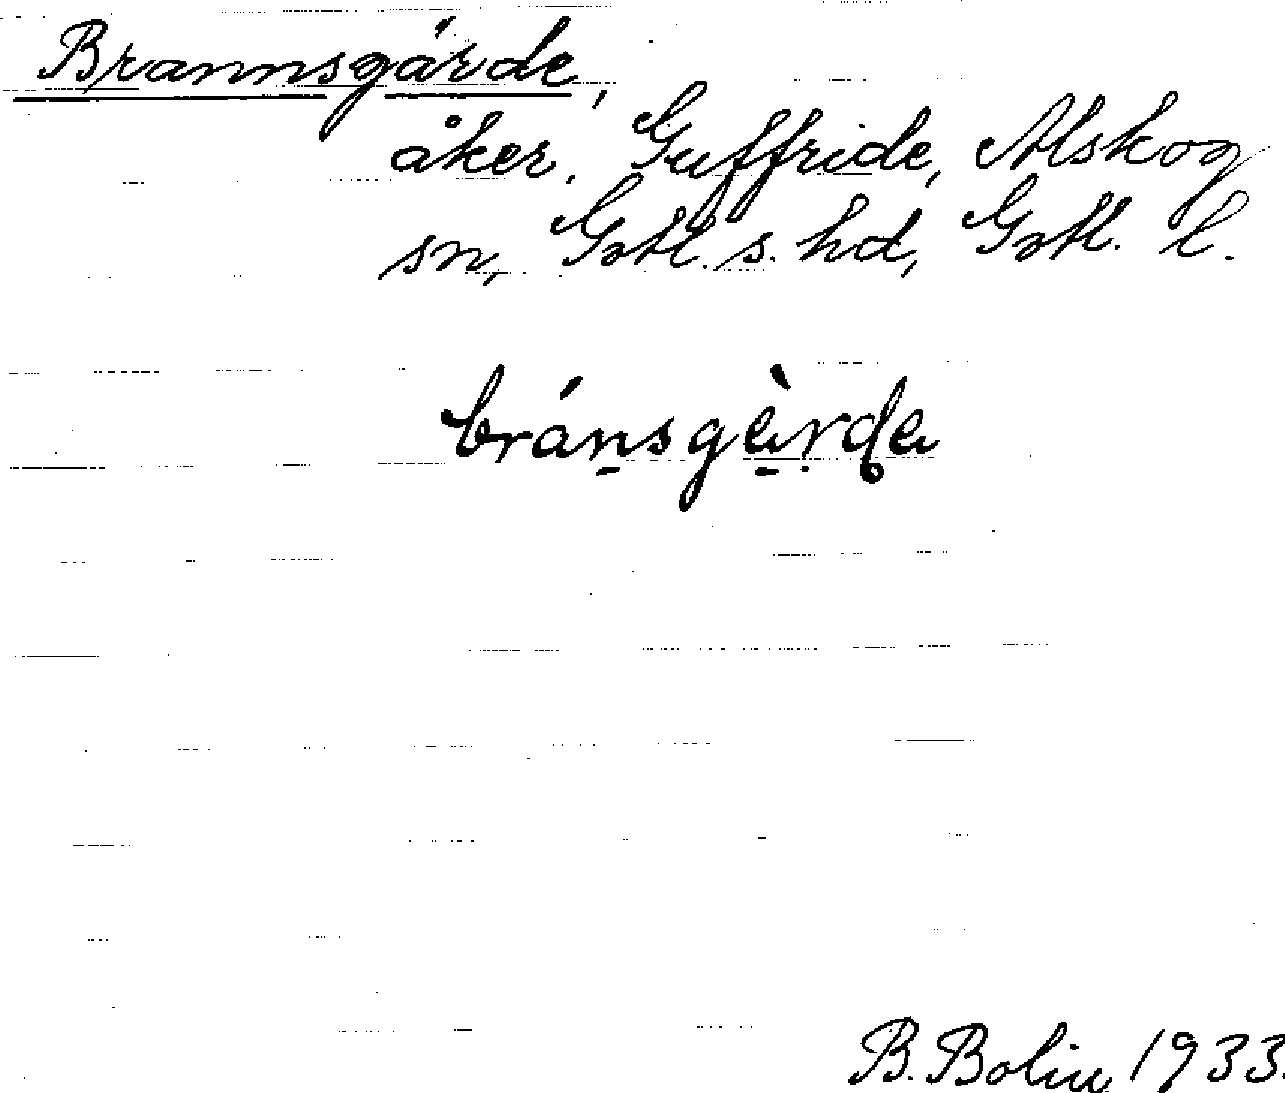 Brannsgärde,
åker, Guffride, Alskog
sn, Gotl. s. hd, Gotl. l.
bránsgàrda
B. Bolin 1933.